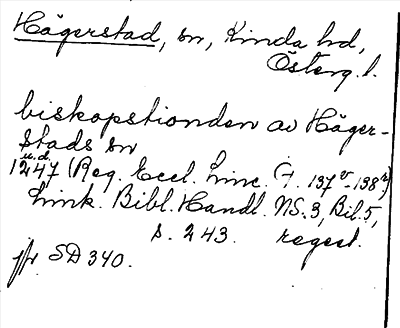 Hägerstad, sn, Kinda hd,
Österg. l.
biskopstionden av Häger-
stads sn
u.d.
1247 (Reg. Eccl. Linc. A. 137v-138r)
Link. Bibl. Handl. NS. 3, Bil. 5,
s. 243. regest.
jfr SD 340.